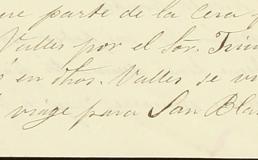 parte de la Cera
Valles por el Sor.
en otros. Valles se
viage para San Blas